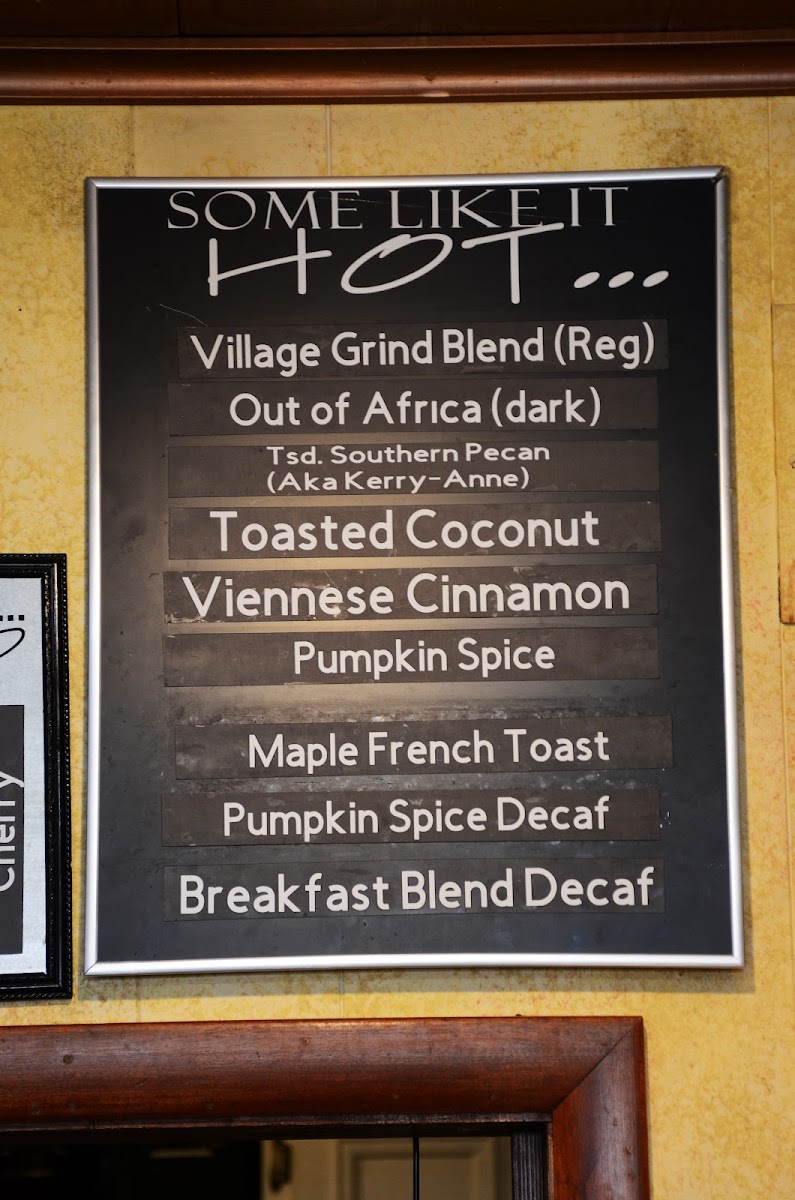 SOME LIKE IT
HOT...
Village Grind Blend (Reg)
Out of Africa (dark)
Tsd. Southern Pecan
(Aka Kerry-Anne)
Toasted Coconut
Viennese Cinnamon
Pumpkin Spice
Maple French Toast
Pumpkin Spice Decaf
Breakfast Blend Decaf
Cherry